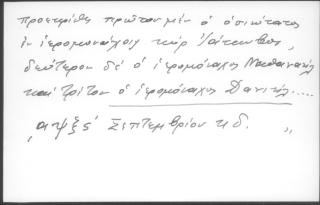 προεκρίθη πρῶτον μὲν ὁ ὁσιώτατος
ἐν ἱερομονάχοις κὺρ Ἰάκωβος,
δεύτερον δὲ ὁ ἱερομόναχος Ναθαναὴλ
καὶ τρίτον ὁ ἱερομόναχος Δανιὴλ.....
͵αψξς΄ Σεπτεμβρίου κδ. "